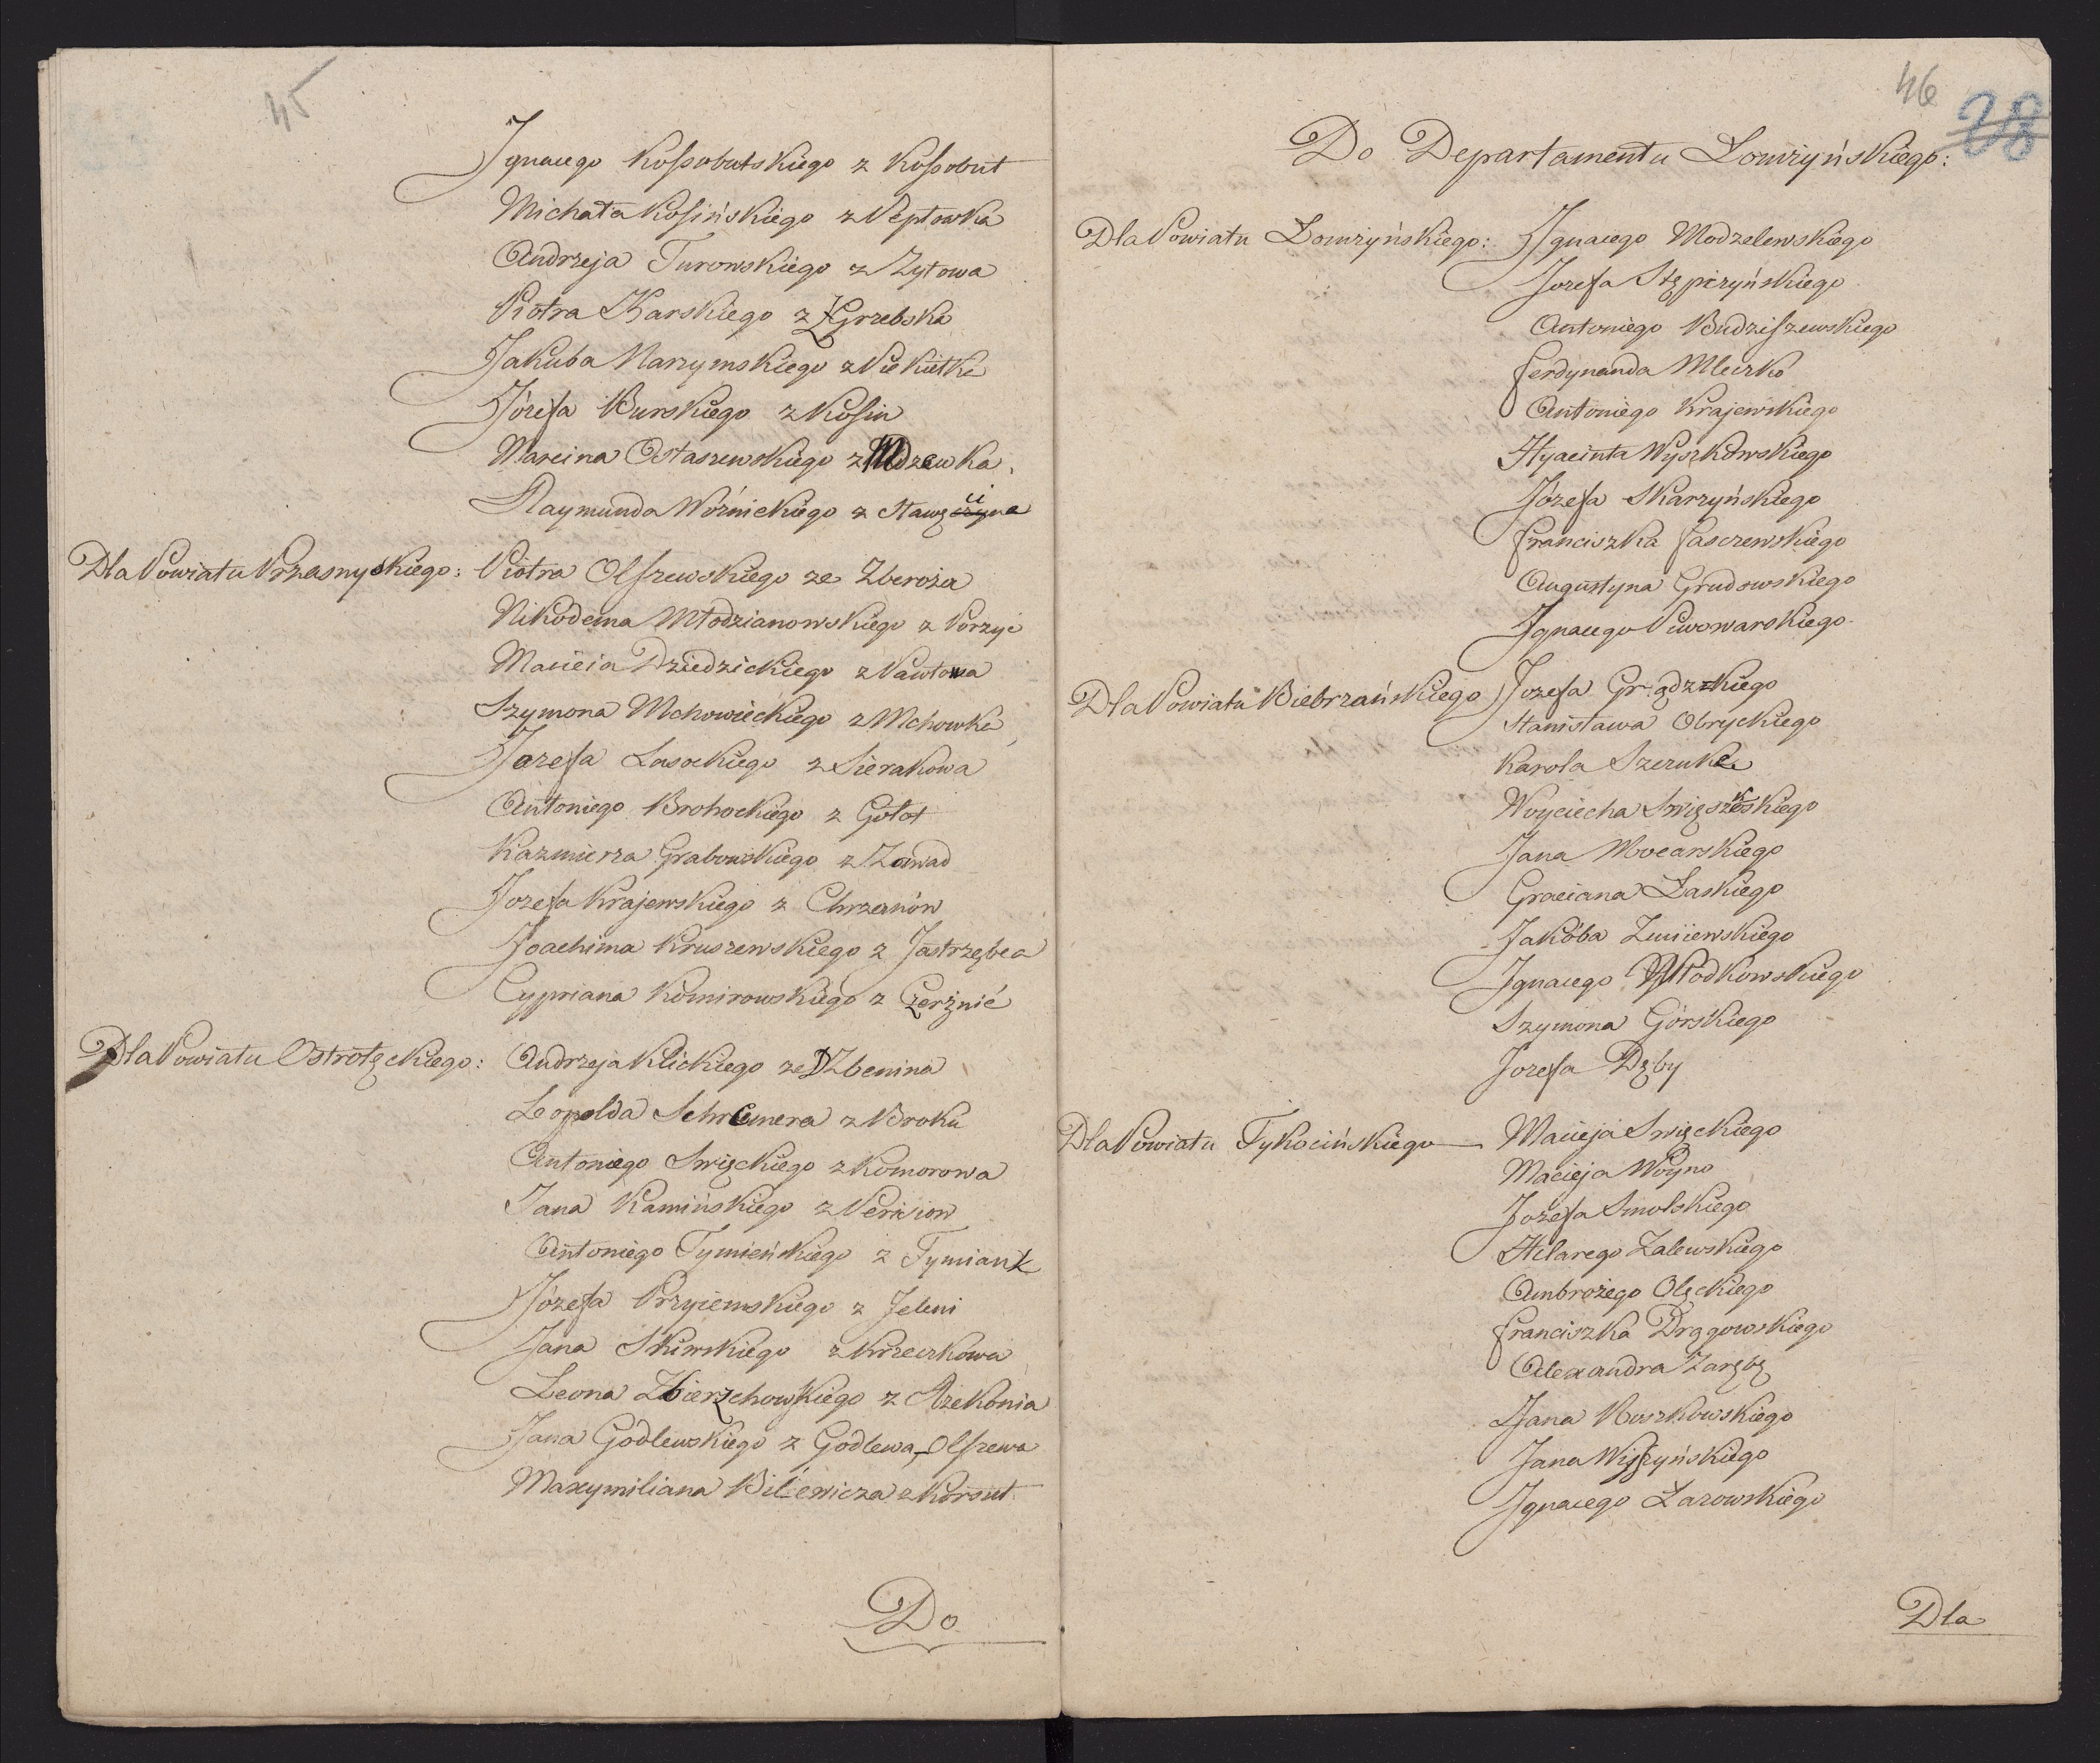 45
Ignacego Kossobutskiego z Kossobut
Michała Kosińskiego z Peptowka
Andrzeja Turowskiego z Zytowa
Piotra Karskiego z Grzebska
Jakuba Narzymskiego z Pie Kiełki
Józefa Burskiego z Kosin
Marcina Ostaszewskiego z Mdzewka
Raymunda Woźnickiego z
Dla Powiatu Przasnyskiego: Piotra Olszewskiego ze Zberoża
Nikodema Młodzianowskiego z Porzyc
Macieia Dziedzickiego z Pawłowa
Szymona Mchowieckiego z Mchowka
Jozefa Lasockiego z Sierakowa
Antoniego Brohockiego z Gołot
Kazmierza Grabowskiego z Zawad
Jozefa Krajewskiego z Chrzanów
Joachima Kruszewskiego z Jastrzębca
Cypriana Komirowskiego z Czerżnić
Dla Powiatu Ostrołęckiego: Andrzeja Klickiego ze Dzbenina
Leopolda Schremera z Broku
Antoniego Swięckiego z Komorowa
Jana Kamińskiego z
Antoniego Tymieńskiego z Tymiank
Józefa Przyiemskiego z Jeleni
Jana Skiwskiego z Krzeczkowa
Leona Zbierzchowskiego z Rzekonia
Jana Godlewskiego z Godlewa-Olszewa
Maxymiliana Bilewicza z
Do
46
28
Do Departamentu Łomżyńskiego:
Dla Powiatu Łomżyńskiego: Ignacego Modzelewskiego
Jozefa Stępczyńskiego
Antoniego Budziszewskiego
Ferdynanda Mleczko
Antoniego Krajewskiego
Hyacinta Wyszkowskiego
Józefa Skarzyńskiego
Franciszka Fasczewskiego
Augustyna Grudowskiego
Ignacego Piwowarskiego
Dla Powiatu Biebrzańskiego Jozefa Grądzkiego
Stanisława Obryckiego
Karola Szczuke
Woyciecha Swięszkoskiego
Jana Mocarskiego
Graciana Łaskiego
Jakóba Zmiiewskiego
Ignacego Włodkowskiego
Szymona Górskiego
Jozefa Dęby
Dla Powiatu Tykocińskiego Macieja Swięckiego
Macieja Woyno
Jozefa Smolskiego
Hilarego Zalewskiego
Ambrożego Olęckiego
Franciszka Drągowskiego
Alexandra Zarębę
Jana Roszkowskiego
Jana Wiszyńskiego
Ignacego Łazowskiego
Dla